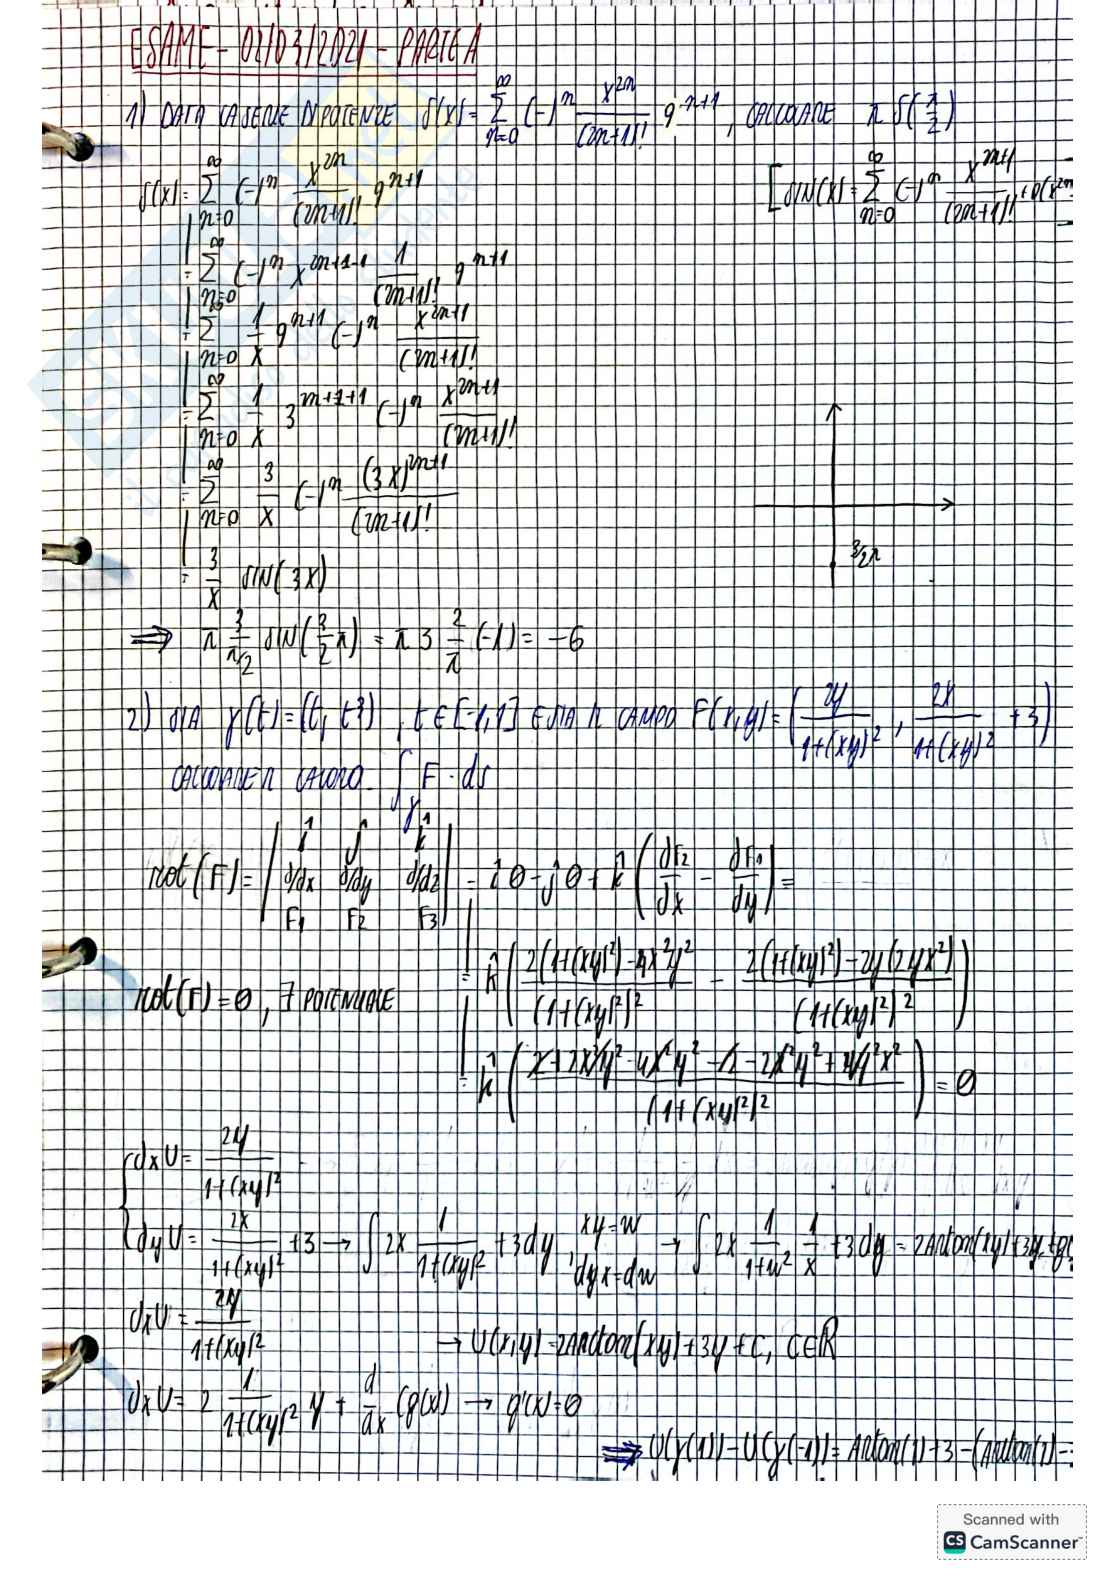 ESAME - 02/03/2021 - PARTE A
1) DATA LA SERIE DI POTENZE S(x) = ∑_{n=0}^{∞} (-)^n x^{2n}/(2n+1)! 9^{n+1}, CALCOLARE π S(π/2)
S(x) = ∑_{n=0}^{∞} (-)^n x^{2n}/(2n+1)! 9^{n+1} [SIN(x) = ∑_{n=0}^{∞} (-)^n x^{2n+1}/(2n+1)! + o(x^{2n
= ∑_{n=0}^{∞} (-)^n x^{2n+1-1} 1/(2n+1)! 9^{n+1}
= ∑_{n=0}^{∞} 1/x 9^{n+1} (-)^n x^{2n+1}/(2n+1)!
= ∑_{n=0}^{∞} 1/x 3^{2n+1+1} (-)^n x^{2n+1}/(2n+1)!
= ∑_{n=0}^{∞} 3/x (-)^n (3x)^{2n+1}/(2n+1)!
3/2π
= 3/x SIN(3x)
⟹ π 3/(π/2) SIN(3/2 π) = π 3 2/π (-1) = -6
2) SIA γ(t) = (t, t³), t ∈ [-1,1] E SIA IL CAMPO F(x,y) = (2y/(1+(xy)²), 2x/(1+(xy)²) + 3)
CALCOLARE IL LAVORO ∫_γ F · ds
rot(F) = | î ĵ k̂ | d/dx d/dy d/dz | F1 F2 F3 | = î 0 - ĵ 0 + k̂ (dF2/dx - dF1/dy) =
= k̂ ( (2(1+(xy)²) - 4x²y²)/(1+(xy)²)² - (2(1+(xy)²) - 2y(2yx²))/(1+(xy)²)² )
rot(F) = 0, ∃ POTENZIALE
= k̂ ( (2 + 2x²y² - 4x²y² - 2 - 2x²y² + 4y²x²)/(1+(xy)²)² ) = 0
{ dxU = 2y/(1+(xy)²)
dyU = 2x/(1+(xy)²) + 3 → ∫ 2x 1/(1+(xy)²) + 3 dy, xy = w, dyx = dw → ∫ 2x 1/(1+w²) 1/x + 3 dy = 2 Arctan(xy) + 3y + g(
dxU = 2y/(1+(xy)²) → U(x,y) = 2Arctan(xy) + 3y + C, C∈ℝ
dxU = 2 1/(1+(xy)²) y + d/dx (g(x)) → g'(x) = 0
⟹ U(γ(1)) - U(γ(-1)) = Arctan(1) + 3 - (Arctan(1) -
Scanned with
CS CamScanner